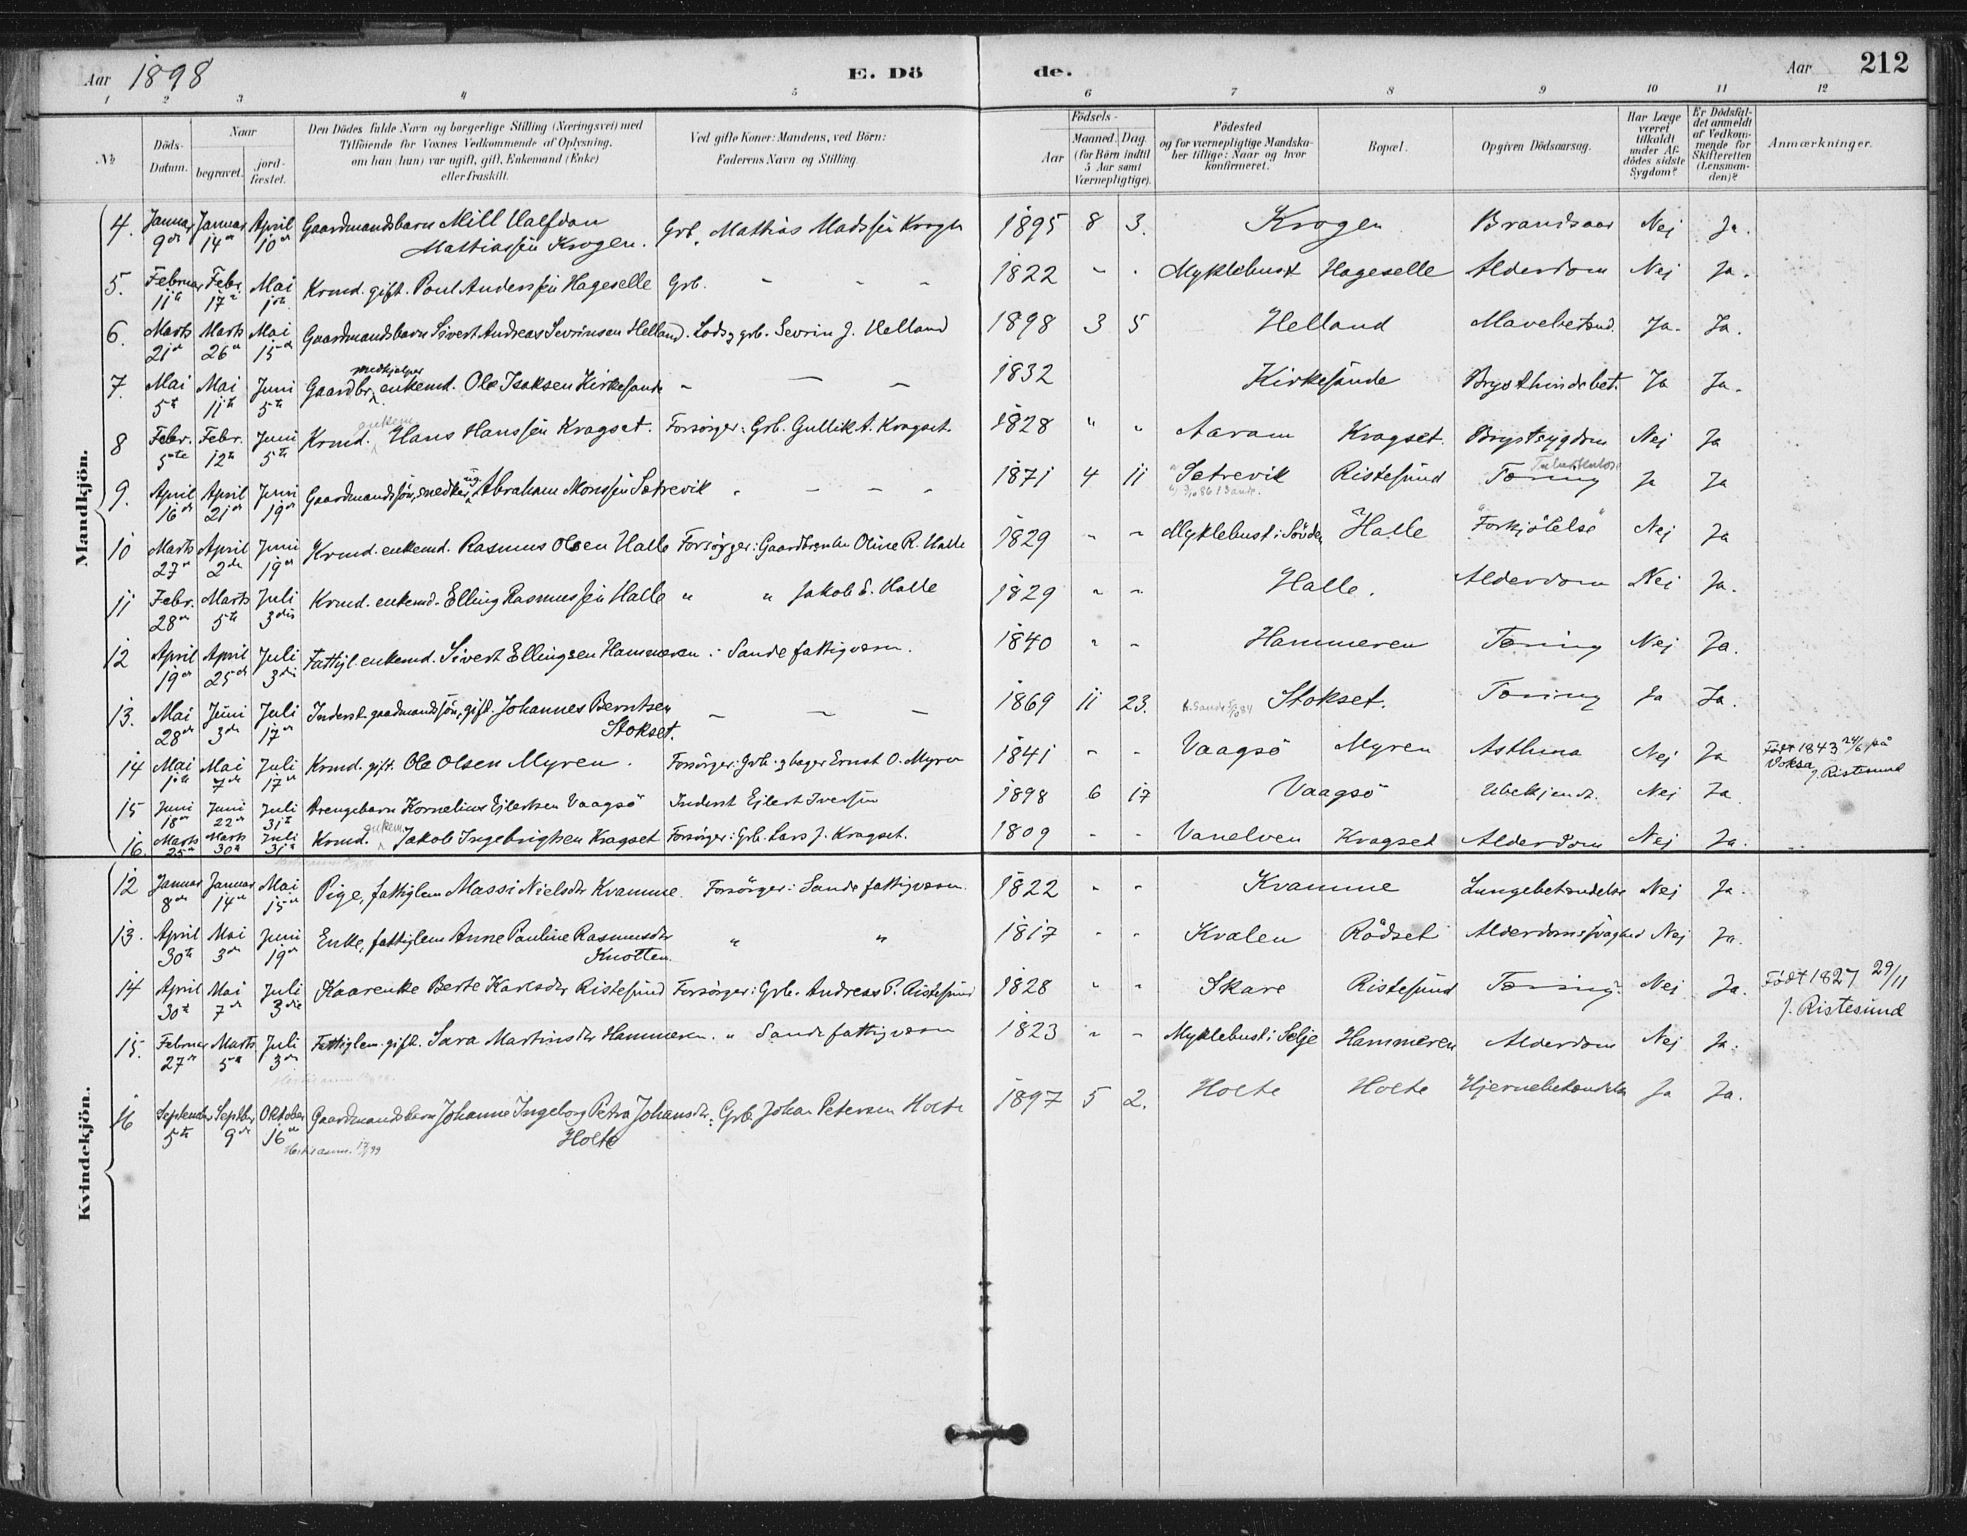 Aar 1898 E. Döde. Aar 212
1 2 3 4 5 6 7 8 9 10 11 12
No Döds-Datum. Naar begravet. jordfæstet. Den Dödes fulde Navn og borgerlige Stilling (Næringsvei) med Tilföiende for Voxnes Vedkommende af Oplysning, om han (hun) var ugift, gift, Enkemand (Enke) eller fraskilt. Ved gifte Koner: Mandens, ved Börn: Faderens Navn og Stilling. Födsels- Aar Maaned. Dag. (for Börn indtil 5 Aar samt Værnepligtige). Födested og for værnepligtige Mandskaber tillige: Naar og hvor konfirmeret. Bopæl. Opgiven Dödsaarsag. Har Læge været tilkaldt under Afdödes sidste Sygdom? Er Dödsfaldet anmeldt af Vedkommende for Skifteretten (Lensmanden)? Anmærkninger.
Mandkjön.
4. Januar 9de Januar 14de April 10de Gaardmandsbarn Mill Halfdan Mathiassen Krogen. Grb. Mathias Madssen Krogen 1895 8 3. Krogen Brandsaar Nej Ja.
5. Februar 11te Febr. 17de Mai 1ste Krmd. gift. Poul Anderssen Hageselle Grb. - - - 1822 - - Myklebust Hageselle Alderdom Nej Ja.
6. Marts 21de Marts 26de Mai 15de Gaardmandsbarn Sivert Andreas Sevrinsen Helland. Lods, grb. Sevrin J. Helland 1898 3 5 Helland Mavebetænd. Ja. Ja.
7. Mai 5te Mai 11te Juni 5te Gaardbr. medhjelper enkemd. Ole Isaksen Kirkesande - - - 1832 Kirkesande Brysthindebet. Ja Ja.
8 Febr. 5te Febr. 12te Juni 5te Krmd. enkem. Hans Hanssen Kragset. Forsörger: Grb. Gullik A. Kragset. 1828 " " Aaram Kragset. Brystsygdom Nej Ja
9. April 16de April 21de Juni 19de Gaardmandssön, snedker, ug. Abraham Monssen Sætrevik " - - - 1871 4 11 Setrevik Ristesund Tæring Tuberkulose Ja Ja
10 Marts 27de April 2den Juni 19de Krmd. enkemd. Rasmus Olsen Halle Forsörger: Gaardbr.enke Oline R. Halle 1829 - - Myklebust i Sövden Halle "Forkjölelse" Nej Ja
11 Febr. 28de Marts 5te Juli 3die Krmd. enkemd. Elling Rasmussen Halle " " Jakob E. Halle 1829 - - Halle. Alderdom Nej Ja.
12 April 19de April 25de Juli 3die Fattigl. enkemd. Sivert Ellingsen Hammeren : Sande fattigvæsn. 1840 - - Hammeren Tæring Nej Ja.
13. Mai 28de Juni 3die Juli 17de Inderst. gaardmandssön, gift. Johannes Berntsen Stokset. - - - 1869 11 23. Stokset. Tæring Ja Ja.
14 Mai 1ste Mai 7de Juli 17de Krmd. gift. Ole Olsen Myren. Forsörger: Grb. og bager Ernst O. Myren 1841 - - Vaagsö Myren Asthma Nej Ja Født 1843 24/6 på Voksa j. Ristesund
15 Juni 18de Juni 22de Juli 31te Drengebarn Kornelius Ejlertsen Vaagsö Inderst Ejlert Iversen 1898 6 17 Vaagsö Ubekjendt. Nej Ja.
16. Marts 25de Marts 30de Juli 31te Krmd. enkem. Jakob Ingebrigtsen Kragset Forsörger: Grb. Lars J. Kragset. 1809 - - Vanelven Kragset Alderdom Nej Ja.
Kvindekjön.
12 Januar 8de Januar 14de Mai 15de Pige, fattiglem Massi Nielsdtr Kvamme. Forsörger: Sande fattigvæsn. 1822 - - Kvamme Lungebetændelse Nej Ja.
13. April 30te Mai 3die Juni 19de Enke, fattiglem Anne Pauline Rasmusdtr Knotten. " " 1817 - - Kvalen Rödset Alderdomssvaghed Nej Ja.
14 April 30te Mai 7de Juli 3die Kaarenke Berte Karlsdtr Ristesund Forsörger: Grb. Andreas P. Ristesund 1828 - - Skare Ristesund Tæring. Nej Ja. Født 1827 29/11 j. Ristesund
15. Februar 27de Marts 5te Juli 3die Fattiglem. gift. Sara Martinsdtr Hammeren. " Sande fattigvæsn 1823 - - Myklebust i Selje Hammeren Alderdom Nej Ja.
16 September 5te Septbr 9de Oktober 16de Gaardmandsbarn Johanne Ingeborg Petra Johansdtr. Holte Grb. Johan Petersen Holte 1897 5 2. Holte Holte Hjernebetændelse Ja Ja.